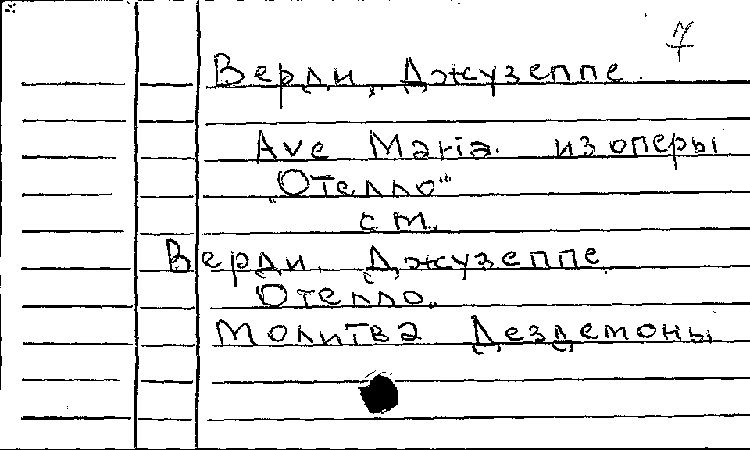 7
Верди, Джузеппе.
Ave Maria. из оперы
„Отелло"
см.
Верди, Джузеппе.
Отелло.
Молитва Дездемоны